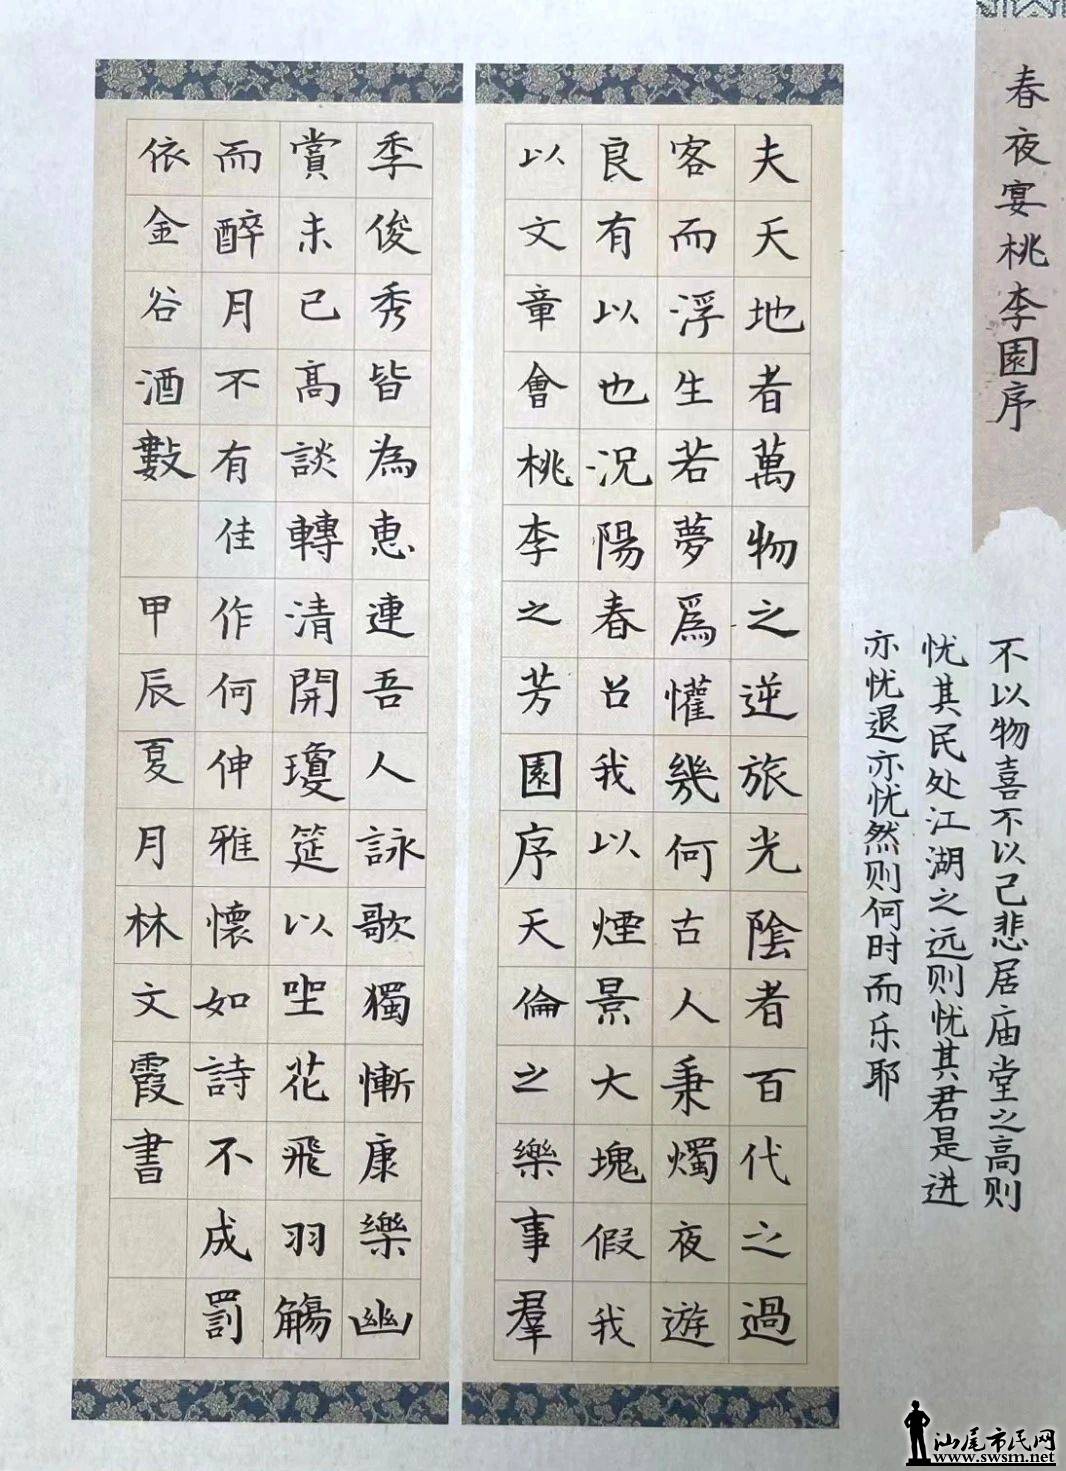 春夜宴桃李園序
不以物喜不以己悲居庙堂之高则
忧其民处江湖之远则忧其君是进
亦忧退亦忧然则何时而乐耶
夫天地者萬物之逆旅光陰者百代之過
客而浮生若夢爲懽幾何古人秉燭夜遊
良有以也況陽春召我以煙景大塊假我
以文章會桃李之芳園序天倫之樂事羣
季俊秀皆為惠連吾人詠歌獨慚康樂幽
賞未已高談轉清開瓊筵以坐花飛羽觴
而醉月不有佳作何伸雅懷如詩不成罰
依金谷酒數 甲辰夏月林文霞書
汕尾市民网
www.swsm.net